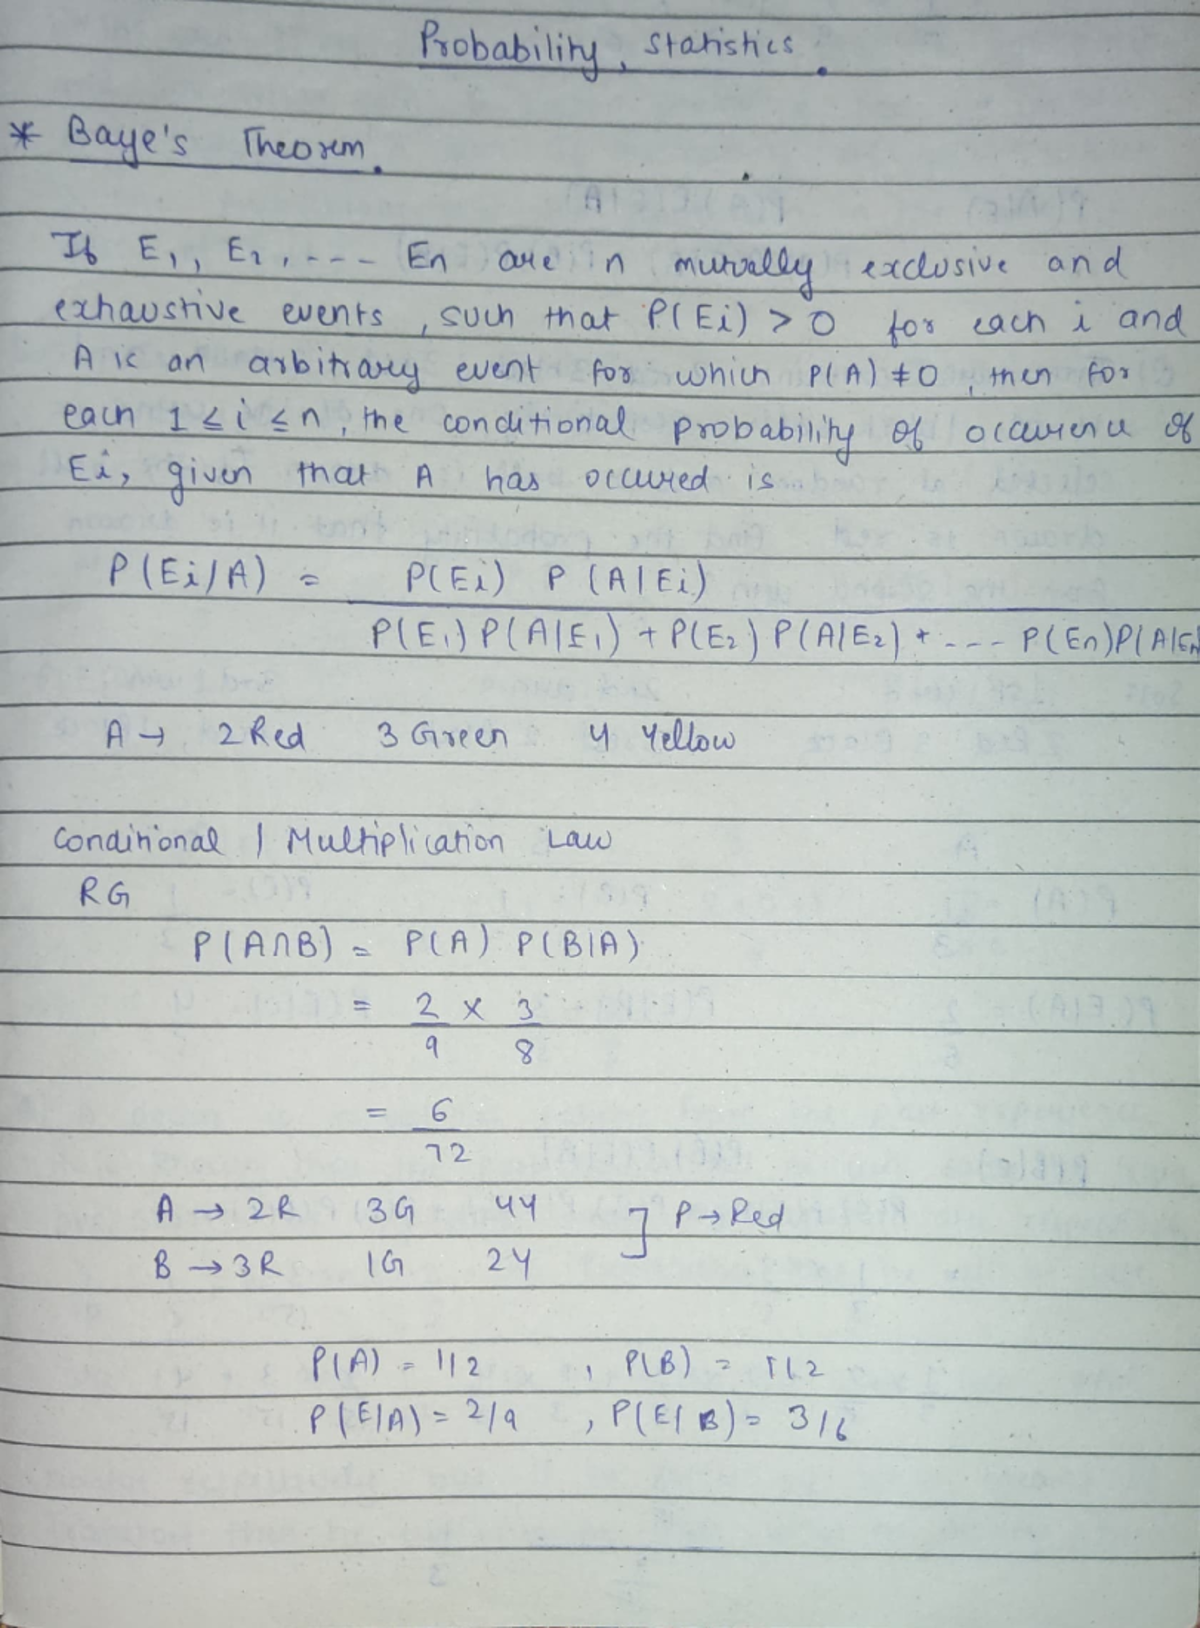 Probability, Statistics.
* Baye's Theorem.
If E₁, E₂, ---- En are n mutually exclusive and
exhaustive events, such that P(Ei) > 0 for each i and
A is an arbitrary event for which P(A) ≠ 0, then for
each 1 ≤ i ≤ n, the conditional probability of occurence of
Ei, given that A has occured is
P(Ei/A) = P(Ei) P(A|Ei)
P(E₁) P(A|E₁) + P(E₂) P(A|E₂) + ---- P(En)P(A|En)
A → 2 Red 3 Green 4 Yellow
Conditional / Multiplication Law
RG
P(A∩B) = P(A) P(B|A)
= 2/9 × 3/8
= 6/72
A → 2R 3G 4Y
] P → Red
B → 3R 1G 2Y
P(A) = 1/2 , P(B) = 1/2
P(E/A) = 2/9 , P(E/B) = 3/6